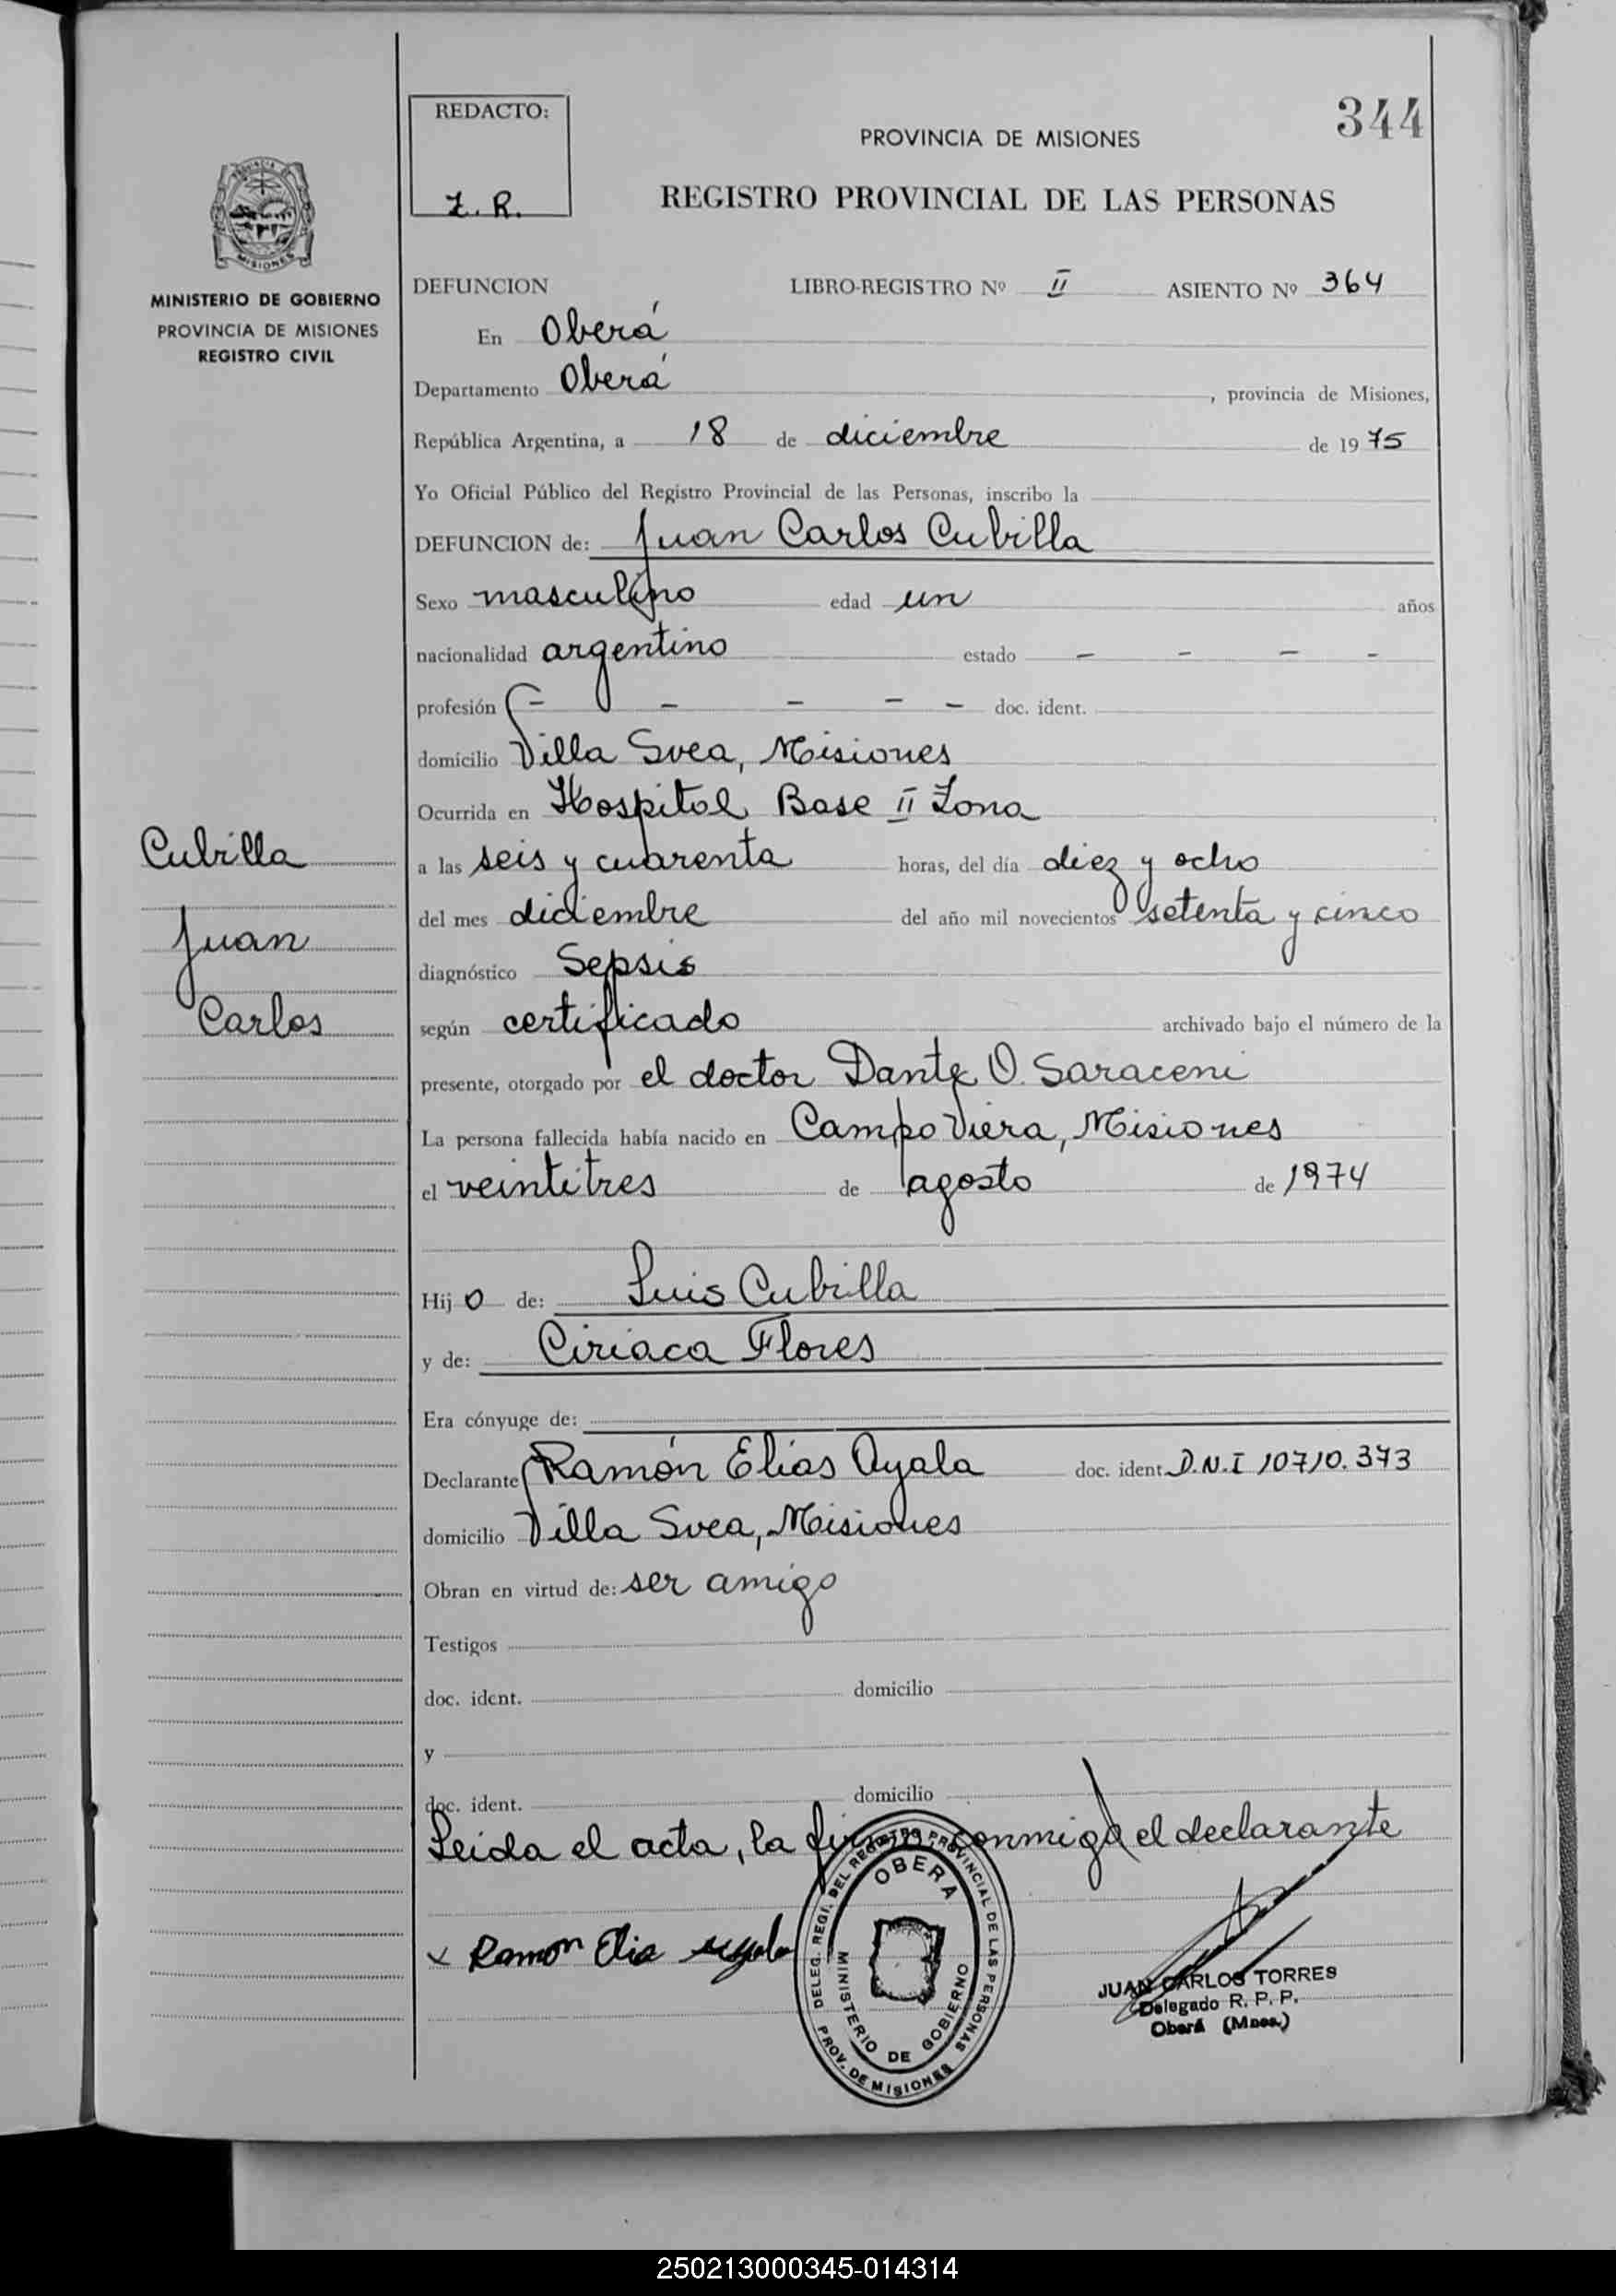 344
REDACTO:
Z. R.
PROVINCIA DE MISIONES
REGISTRO PROVINCIAL DE LAS PERSONAS
MISIONES
MINISTERIO DE GOBIERNO
PROVINCIA DE MISIONES
REGISTRO CIVIL
DEFUNCION LIBRO-REGISTRO Nº II ASIENTO Nº 364
En Oberá
Departamento Oberá , provincia de Misiones,
República Argentina, a 18 de diciembre de 1975
Yo Oficial Público del Registro Provincial de las Personas, inscribo la
DEFUNCION de: Juan Carlos Cubilla
Sexo masculino edad un años
nacionalidad argentino estado - - - -
profesión - - - - - doc. ident.
domicilio Villa Svea, Misiones
Ocurrida en Hospital Base II Zona
Cubilla
Juan
Carlos
a las seis y cuarenta horas, del día diez y ocho
del mes diciembre del año mil novecientos setenta y cinco
diagnóstico Sepsis
según certificado archivado bajo el número de la
presente, otorgado por el doctor Dante O. Saraceni
La persona fallecida había nacido en Campo Viera, Misiones
el veintitres de agosto de 1974
Hijo de: Luis Cubilla
y de: Ciriaca Flores
Era cónyuge de:
Declarante Ramón Elías Ayala doc. ident. D.N.I 10710.373
domicilio Villa Svea, Misiones
Obran en virtud de: ser amigo
Testigos
doc. ident. domicilio
y
doc. ident. domicilio
Leida el acta, la firma conmigo el declarante
x Ramon Elia Ayala
DELEG. REGI. DEL REGISTRO PROVINCIAL DE LAS PERSONAS
OBERA
MINISTERIO DE GOBIERNO
PROV. DE MISIONES
JUAN CARLOS TORRES
Delegado R. P. P.
Oberá (Mnes.)
250213000345-014314